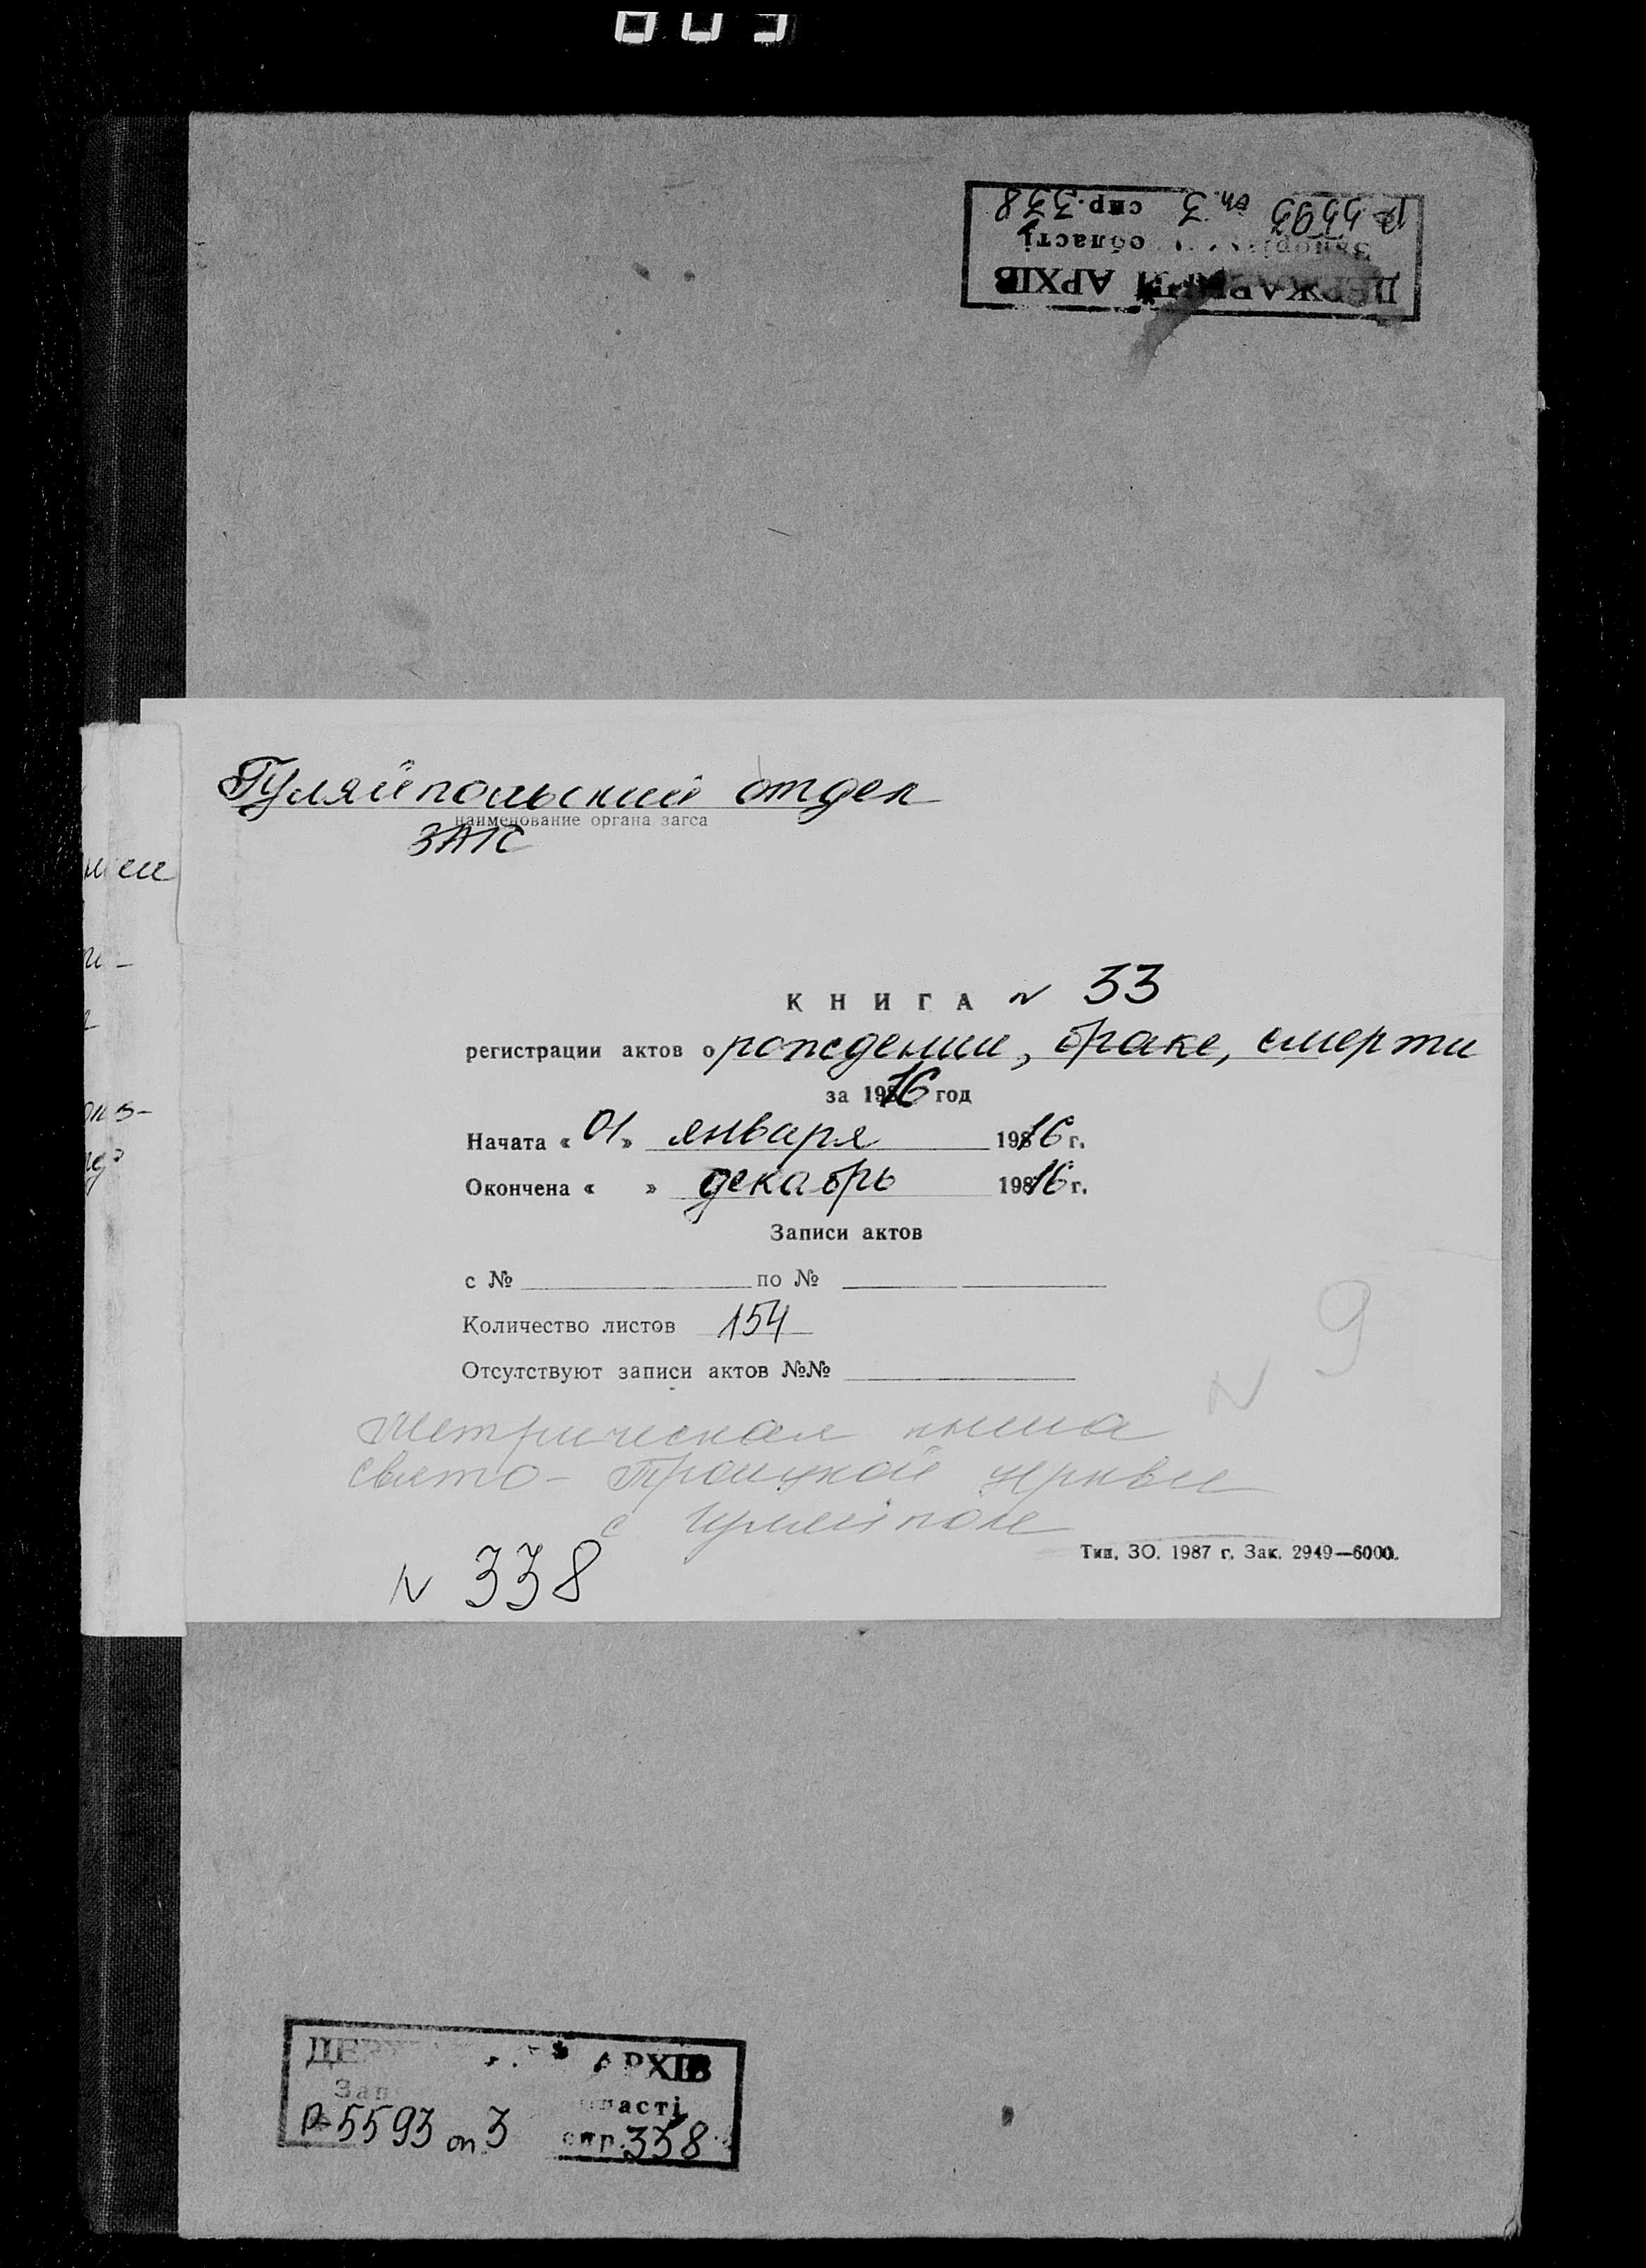 003
Р-5593 оп. 3 спр. 338
області
ДЕРЖАВНИЙ АРХІВ
Гуляйпольский отдел
наименование органа загса
ЗАГС
КНИГА N 33
регистрации актов о рождении, браке, смерти
за 1916 год
Начата « 01 » января 1916 г.
Окончена « » декабрь 1916 г.
Записи актов
с № по №
Количество листов 154
Отсутствуют записи актов №№
N 9
Метрическая книга
Свято-Троицкой церкви
с Гуляйполе
Тип. ЗО. 1987 г. Зак. 2949—6000.
N 338
АРХІВ
Р-5593 оп 3 спр. 338